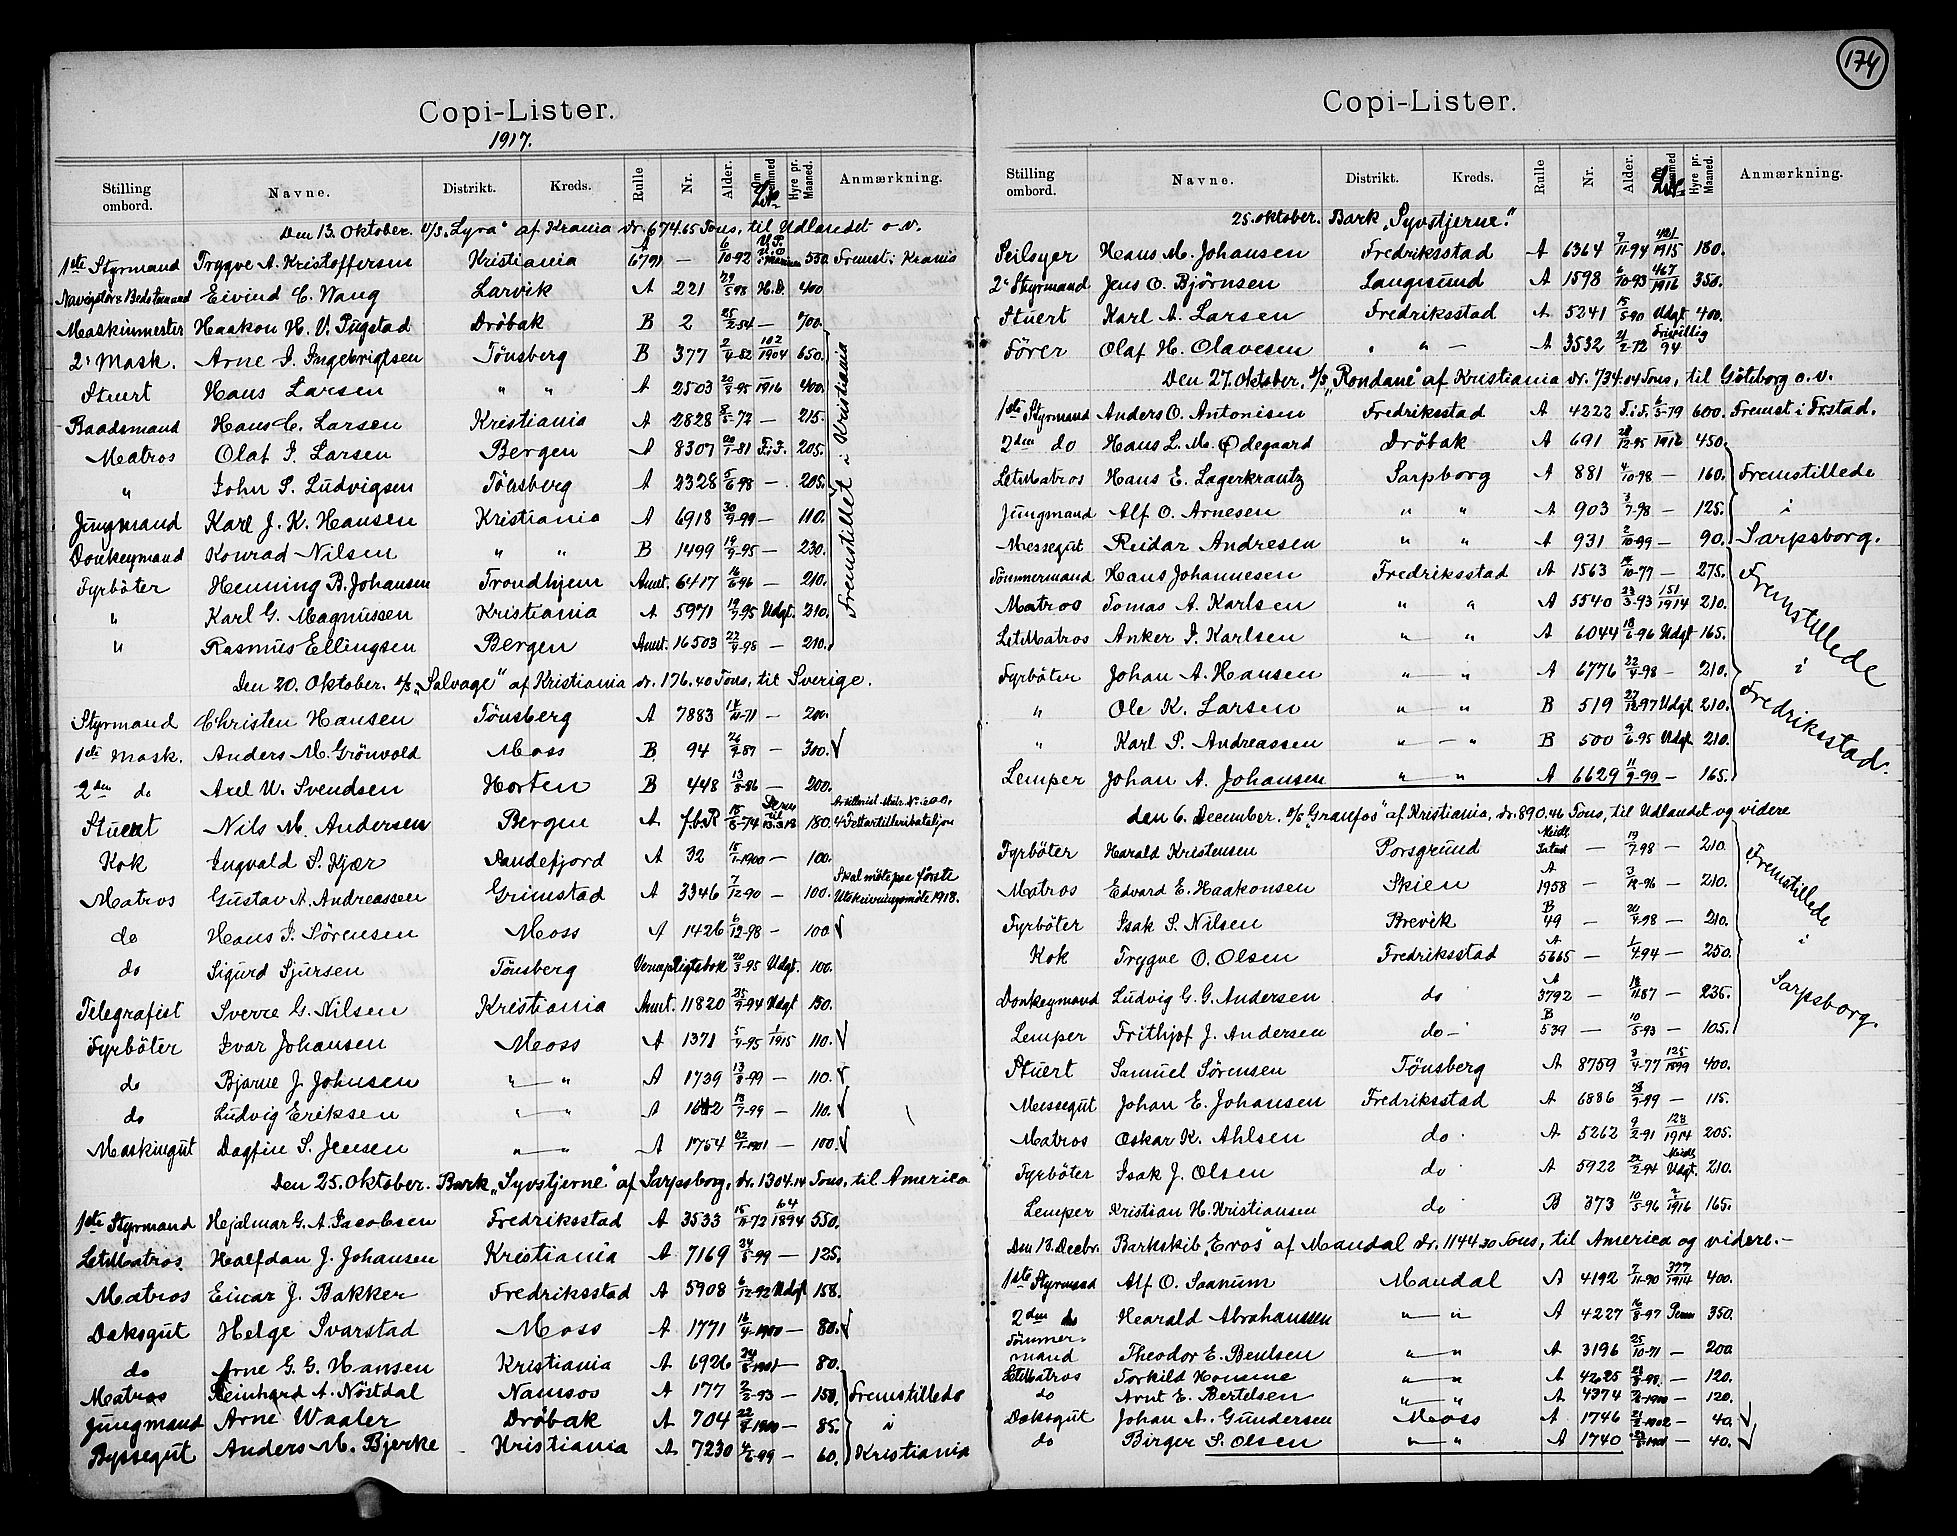 Copi-Lister.
1917.
Stilling ombord. Navne. Distrikt. Kreds. Rulle Nr. Alder. Hyre pr. Maaned. Anmærkning.
Den 13. Oktober. D/S "Lyra" af Krania dr. 674.65 Tons, til Udlandet o.v.
1ste Styrmand Trygve A. Kristoffersen Kristiania A 6791 — 6/10-92 550. Fremst. i Krania
Eivind C. Wang Larvik A 221 29/5 98 400
Maskinmester Haakon H. V. Pugstad Dröbak B 2 25/2-54 — 700.
2. Mask. Arne I. Ingebrigtsen Tönsberg B 377 2/4-82 102/1904 650.
Stuert Hans Larsen " " A 2503 20/9-95 1916 400.
Baadsmand Hans C. Larsen Kristiania A 2828 8/5-72 — 215.
Matros Olaf I. Larsen Bergen A 8307 20/7-81 F.i.F. 205.
" John S. Ludvigsen Tönsberg A 2328 5/6-98 — 205.
Jungmand Karl J. K. Hansen Kristiania A 6918 30/9-99 — 110.
Donkeymand Konrad Nilsen " " B 1499 19/9-95 — 230.
Fyrböter Henning B. Johansen Trondhjem Annt. 6417 16/6 96 — 210.
" Karl G. Magnussen Kristiania A 5971 19/7-95 Udgt. 210.
" Rasmus Ellingsen Bergen Annt. 16503 22/9-98 — 210.
Fremstillet i Kristiania
Den 20. Oktober. D/S "Salvage" af Kristiania dr. 176.40 Tons, til Sverige.
Styrmand Christen Hansen Tönsberg A 7883 14/11-71 — 200.
1ste Mask. Anders M. Grönvold Moss B. 94 26/9-87 — 300. ✓
2den do Axel W. Svendsen Horten B 448 13/5-86 — 200.
Stuert Nils M. Andersen Bergen A f.b.R 15/8-74 180.
Kok Ingvald S. Kjær Sandefjord A 32 15/1-1900 — 100.
Matros Gustav A. Andreassen Grimstad A 3346 7/12-90 — 100. Skal möte paa förste Utskrivningsmöte 1918.
do Hans I. Sörensen Moss A 1426 6/12-98 — 100 ✓
do Sigurd Sjursen Tönsberg Vernepligtsbok 20/3-95 Udgt. 100.
Telegrafist Sverre G. Nilsen Kristiania Annt. 11820 25/9-94 Udgt 150.
Fyrböter Ivar Johansen Moss A 1371 5/9-95 1/1915 110. ✓
do Bjarne J. Johnsen " — " A 1739 13/8-99 — 110. ✓
do Ludvig Eriksen " — " A 13/7-99 — 110. ✓
Maskingut Dagfin S. Jensen " — " A 1754 22/1-1901 — 100. ✓
Den 25. Oktober. Bark "Syvstjerne" af Sarpsborg, dr. 1304.14 Tons, til America
1ste Styrmand Hejalmar G. A. Jacobsen Fredriksstad A 3533 15/11-72 64/1894 550.
LetMatros. Halfdan J. Johansen Kristiania A 7169 24/5-99 — 125.
Matros Einar J. Bakker Fredriksstad A 5908 6/12-92 Udgt 158.
Daksgut Helge Svarstad Moss A 1771 16/4-1900 — 80. ✓
do Arne G. G. Hansen Kristiania A 6926 24/8-1901 — 80.
Matros Reinhard A. Nöstdal Namsos A 177 2/3-93 — 150. Fremstillede
Jungmand Arne Waaler Dröbak A 704 22/8-1900 — 85. i
Byssegut Anders M. Bjerke Kristiania A 7230 4/6-99 — 60. Kristiania
174
Copi-Lister.
Stilling ombord. Navne. Distrikt. Kreds. Rulle Nr. Alder. Hyre pr. Maaned. Anmærkning.
25. Oktober. Bark "Syvstjerne."
Seilsyer Hans M. Johansen Fredriksstad A 6364 9/11-94 421/1915 180.
2. Styrmand Jens O. Björnsen Langesund A 1598 6/10-93 467/1916 350.
Stuert Karl A. Larsen Fredriksstad A 5241 15/5-90 Udgt 400.
Förer Olaf H. Olavesen " " — A 3532 21/2-72 Frivillig 94
Den 27. Oktober. D/S "Rondane" af Kristiania dr. 734.04 Tons, til Göteborg o.v.
1ste Styrmand Anders O. Antonisen Fredriksstad A 4222 F.i.F. 6/5-79 600. Fremst i Frstad.
2den do Hans L. M. Ödegaard Dröbak A 691 28/12-95 1916 450.
LetMatros Hans E. Lagerkrantz Sarpborg A 881 4/10-98 — 160.
Jungmand Alf O. Arnesen " " A 903 3/7-98 — 125.
Messegut Reidar Andresen " " A 931 2/10-99 — 90.
Fremstillede i Sarpsborg.
Tömmermand Hans Johannesen Fredriksstad A 1563 14/10-77 — 275.
Matros Tomas A. Karlsen " " A 5540 23/3-93 151/1914 210.
LetMatros Anker I. Karlsen " — " A 6044 18/6-96 Udgt 165.
Fyrböter Johan A. Hansen " — " A 6776 22/4-98 — 210.
" Ole K. Larsen " — " B 519 27/12-97 Udgt 210.
" Karl P. Andreassen " — " B 500 9/6-95 Udgt. 210.
Lemper Johan A. Johansen " — " A 6629 11/9-99 — 165.
Fremstillede i Fredriksstad.
den 6. December. D/S "Granfos" af Kristiania, dr. 890.46 Tons, til Udlandet og videre
Fyrböter Harald Kristensen Porsgrund — 19/7-98 — 210.
Matros Edvard E. Haakonsen Skien A 1958 — 3/12-96 — 210.
Fyrböter Isak S. Nilsen Brevik B 49 — 20/9-98 — 210.
Kok Trygve O. Olsen Fredriksstad A 5665 — 1/4-94 — 250.
Donkeymand Ludvig G. G. Andersen do A 3792 — 18/11-87 — 235.
Lemper Frithjof J. Andersen do — B 539 — 10/5-93 — 105.
Fremstillede i Sarpsborg.
Stuert Samuel Sörensen Tönsberg A 8759 3/4-77 125/1899 400.
Messegut Johan E. Johansen Fredriksstad A 6886 23/9-99 — 115.
Matros Oskar K. Ahlsen do A 5262 9/2-91 123/1914 205.
Fyrböter Isak J. Olsen do A 5922 22/2-94 Udgt. 210.
Lemper Kristian H. Kristiansen do B 373 10/5-96 2/1916 165.
Den 13. Decbr. Barkskib "Eros" af Mandal dr. 1144.30 Tons, til America og videre. —
1ste Styrmand Alf O. Saanum Mandal A 4192 7/11-90 377/1914 400.
2den do Hearald Abrahamsen " — " A 4227 16/8-97 350.
Tömmermand Theodor E. Bentsen " — " A 3196 25/10-71 — 200
LetMatros Torkild Homme " — " A 4225 23/8-98. — 120.
do Arnt E. Bertelsen " — " A 4374 — 120.
Daksgut Johan A. Gundersen Moss A 1746 21/2-1902 — 40. ✓
do Birger S. Olsen " — " A 1740 — 40. ✓